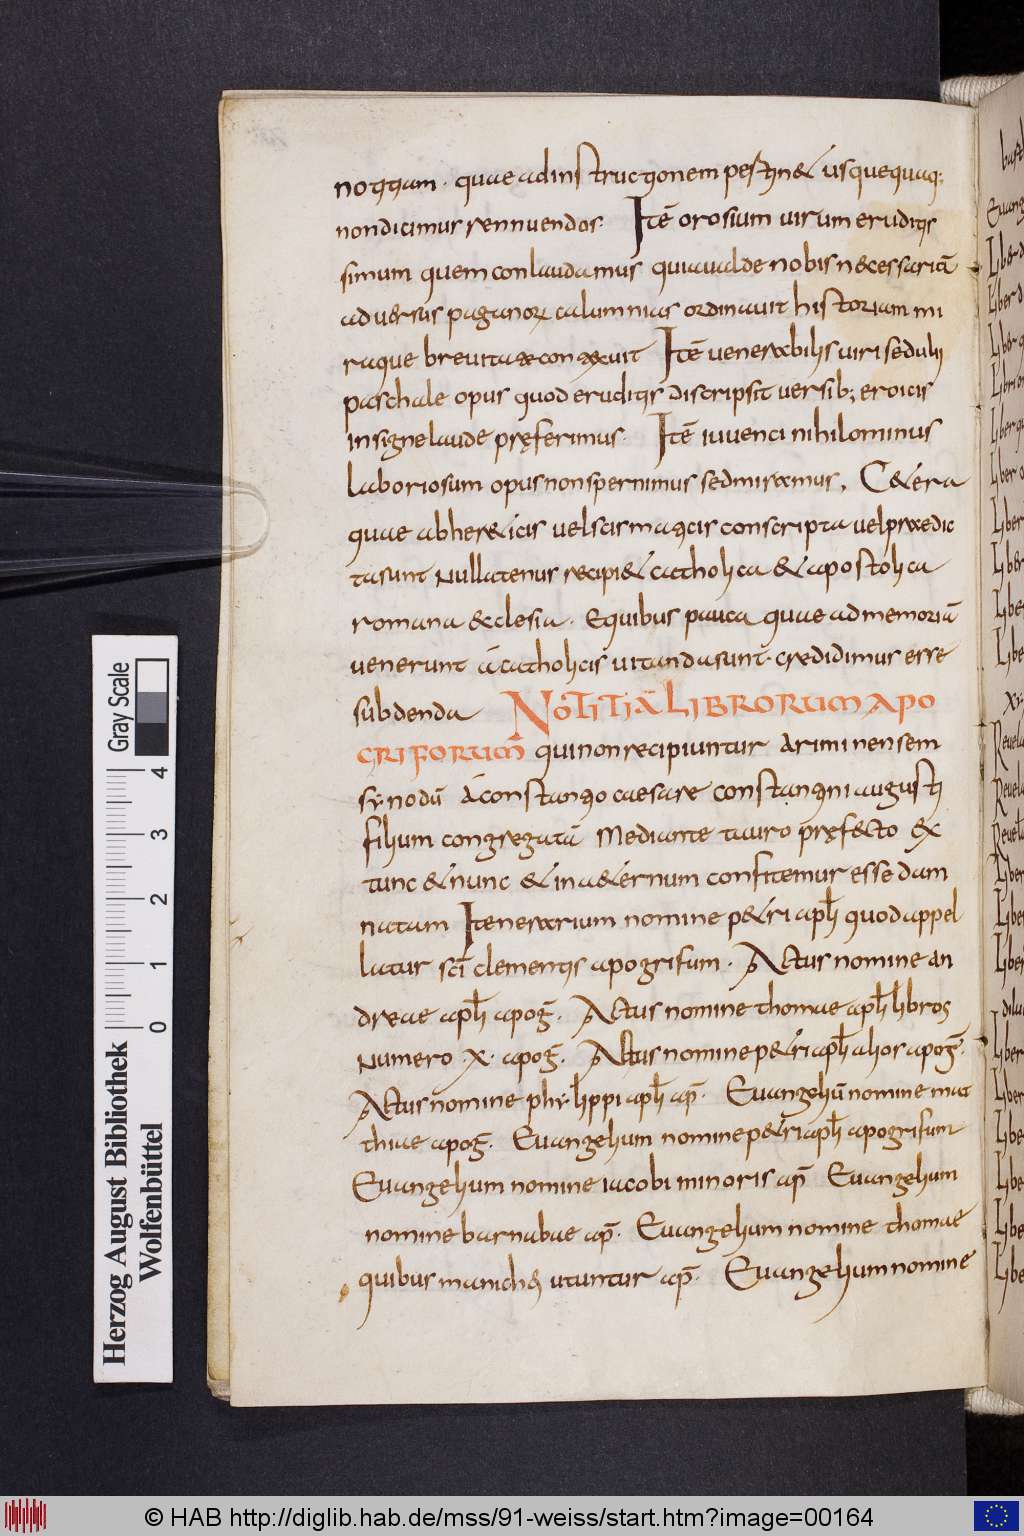 notitiam. quae ad instructionem pestinet usquequaq;
non dicimus rennuendas. Itē orosium uirum eruditis
simum quem conlaudamus quia ualde nobis necessariā
aduersus paganorꝝ calumnias ordinauit historiam mi
raque breuitate contexuit Itē uenerabilis uiri sedulii
paschale opus quod eruditis discripsit uersib; eroicis
insigne laude pręferimus. Itē iuuenci nihilominus
laboriosum opus non spernimus sed miramur, Cetera
quae ab hereticis uel scismaticis conscripta uel praedic
ta sunt nullatenus recipiet catholica et apostolica
romana ecclesia. E quibus pauca quae ad memoriā
uenerunt & a catholicis uitanda sunt. credidimus esse
subdenda NOTITIA LIBRORUM APO
CRIFORUM qui non recipiuntur Ariminensem
synodū a constantio caesare constantini augusti
filium congregatā mediante tauro pręfecto ex
tunc & nunc & in aeternum confitemur esse dam
natam Itenerarium nomine petri apl̄i quod appel
latur sc̄i clementis apogrifum. Actus nomine an
dreae apl̄i apog̅. Actus nomine thomae apl̄i libros
numero .x. apog̅. Actus nomine petri apl̄i alior apog̅.
Actus nomine phylippi apl̄i ap̄. Euangeliū nomine mat
thiae apog̅. Euangelium nomine petri apl̄i apogrifum
Euangelium nomine iacobi minoris ap̄ Euangelium
nomine barnabae ap̄. Euangelium nomine thomae
quibus manichei utuntur ap̄. Euangelium nomine
Gray Scale
0 1 2 3 4
Herzog August Bibliothek
Wolfenbüttel
© HAB http://diglib.hab.de/mss/91-weiss/start.htm?image=00164